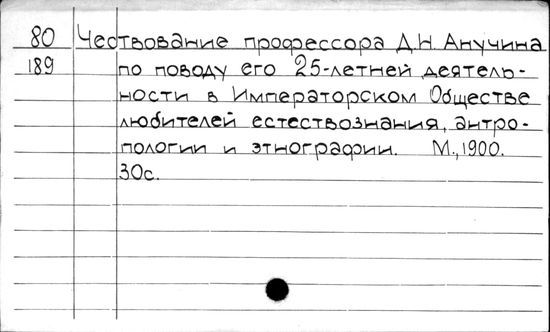 80 Чествование профессора Д.Н. Анучина
189 по поводу его 25-летней деятель-
ности в Императорском Обществе
любителей естествознания, антро-
пологии и этнографии. М., 1900.
30с.